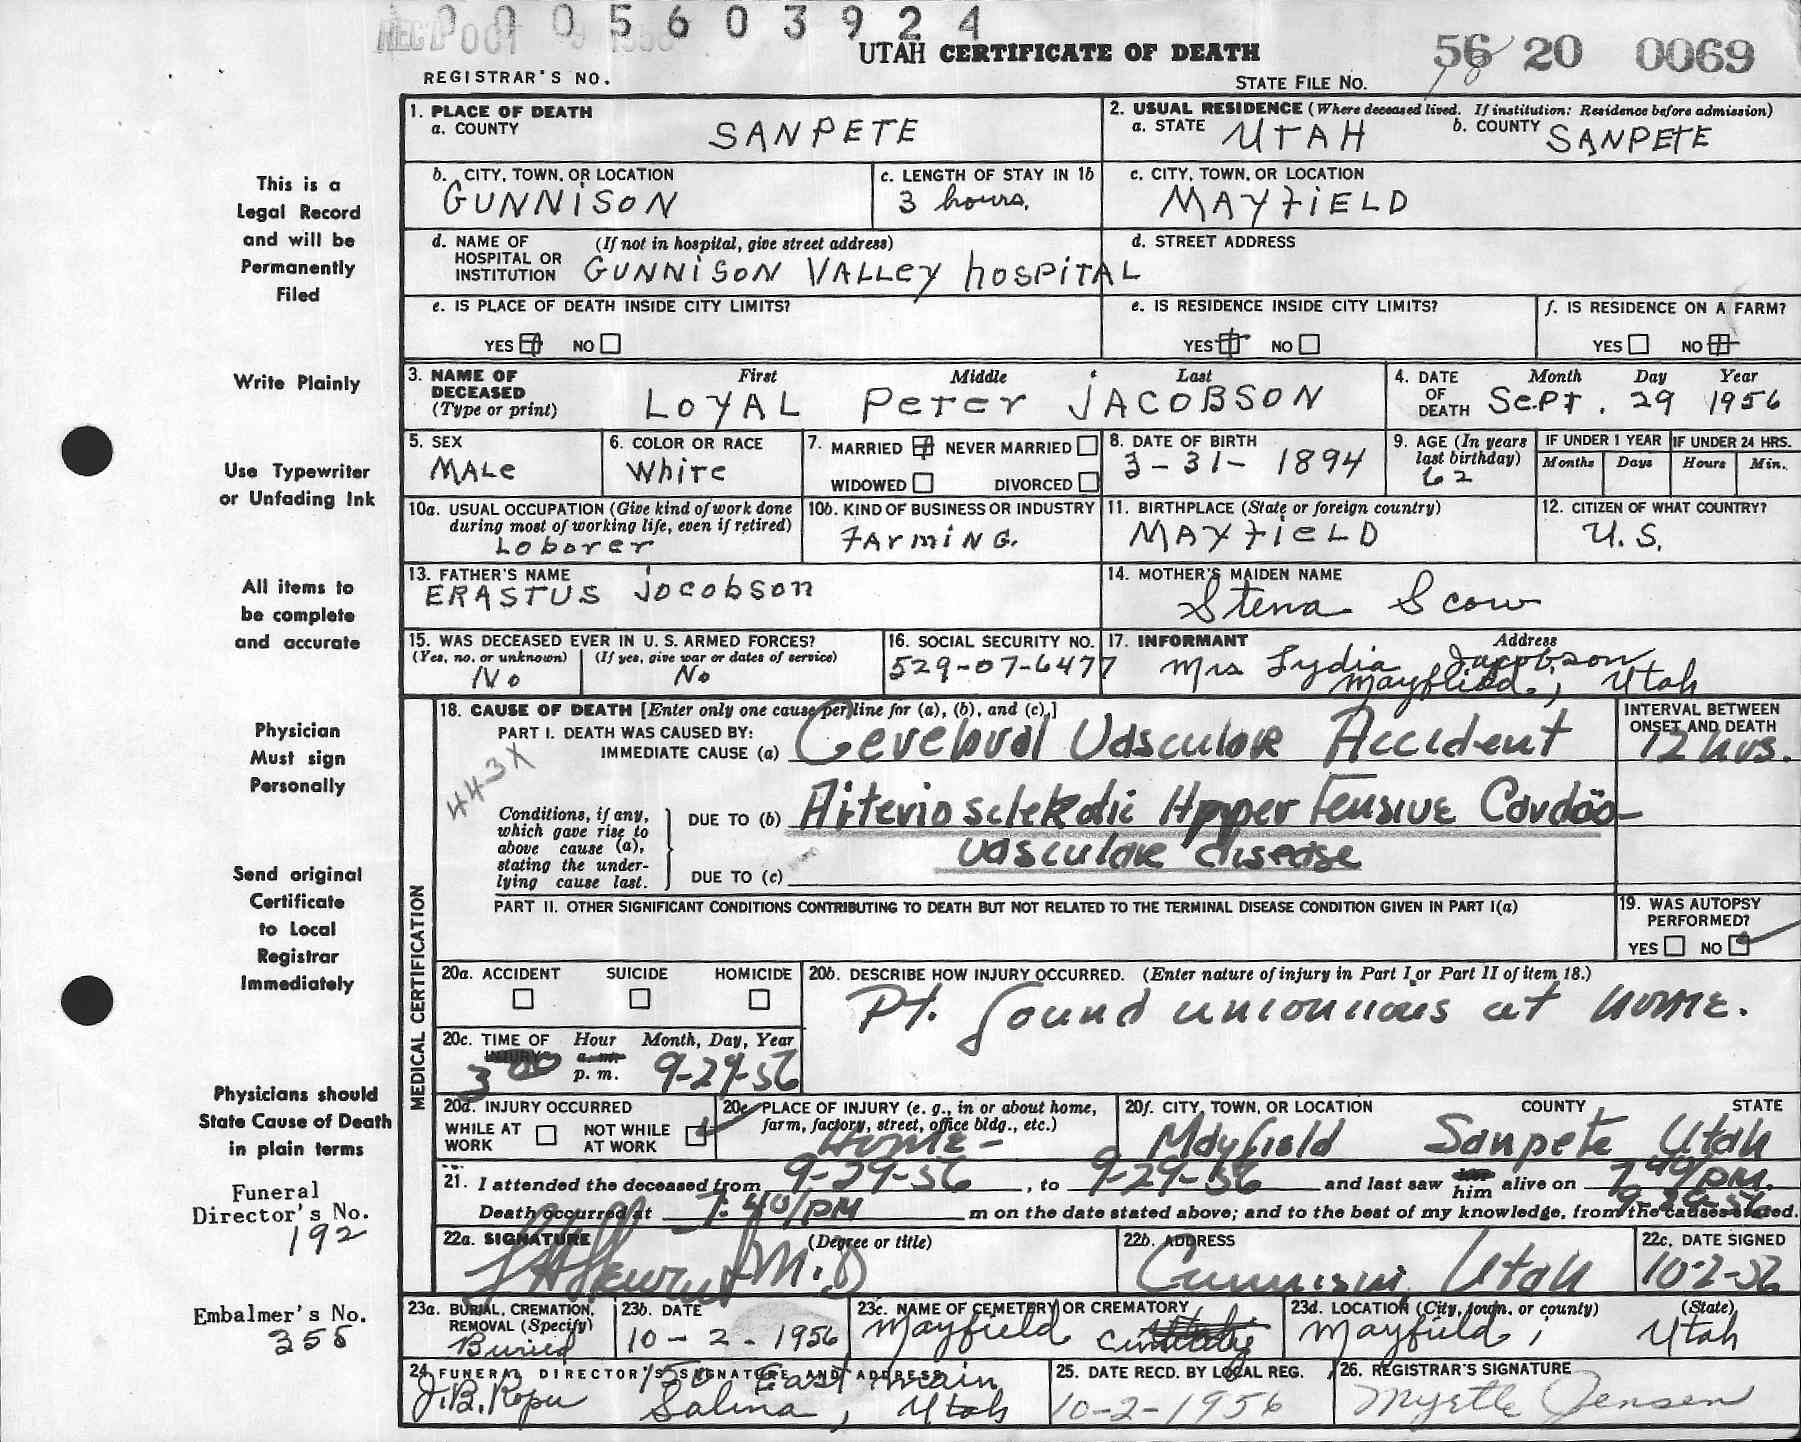 0 0 0 5 6 0 3 9 2 4
REC'D OCT 9 1956
UTAH CERTIFICATE OF DEATH
56 20 0069
REGISTRAR'S NO.
STATE FILE NO.
1. PLACE OF DEATH
a. COUNTY SANPETE
2. USUAL RESIDENCE (Where deceased lived. If institution: Residence before admission)
a. STATE UTAH b. COUNTY SANPETE
b. CITY, TOWN, OR LOCATION
GUNNISON
c. LENGTH OF STAY IN 1b
3 hours.
c. CITY, TOWN, OR LOCATION
MAYFIELD
d. NAME OF HOSPITAL OR INSTITUTION (If not in hospital, give street address)
GUNNISON VALLEY HOSPITAL
d. STREET ADDRESS
e. IS PLACE OF DEATH INSIDE CITY LIMITS?
YES NO
e. IS RESIDENCE INSIDE CITY LIMITS?
YES NO
f. IS RESIDENCE ON A FARM?
YES NO
3. NAME OF DECEASED (Type or print)
First Middle Last
LOYAL Peter JACOBSON
4. DATE OF DEATH Month Day Year
Sept. 29 1956
5. SEX
MALe
6. COLOR OR RACE
White
7. MARRIED NEVER MARRIED
WIDOWED DIVORCED
8. DATE OF BIRTH
3-31-1894
9. AGE (In years last birthday)
62
IF UNDER 1 YEAR IF UNDER 24 HRS.
Months Days Hours Min.
10a. USUAL OCCUPATION (Give kind of work done during most of working life, even if retired)
Loborer
10b. KIND OF BUSINESS OR INDUSTRY
FARmiNG.
11. BIRTHPLACE (State or foreign country)
MAYFIELD
12. CITIZEN OF WHAT COUNTRY?
U.S.
13. FATHER'S NAME
ERASTUS Jocobson
14. MOTHER'S MAIDEN NAME
Stena Scow
15. WAS DECEASED EVER IN U. S. ARMED FORCES?
(Yes, no, or unknown) (If yes, give war or dates of service)
No No
16. SOCIAL SECURITY NO.
529-07-6477
17. INFORMANT Address
Mrs Lydia Jacobson
Mayfield, Utah
18. CAUSE OF DEATH [Enter only one cause per line for (a), (b), and (c).]
INTERVAL BETWEEN ONSET AND DEATH
PART I. DEATH WAS CAUSED BY:
IMMEDIATE CAUSE (a) Cerebral Vascular Accident 12 hrs.
443X
Conditions, if any, which gave rise to above cause (a), stating the underlying cause last.
DUE TO (b) Arterio sclerotic Hyper Tensive Cardio-
vascular disease
DUE TO (c)
PART II. OTHER SIGNIFICANT CONDITIONS CONTRIBUTING TO DEATH BUT NOT RELATED TO THE TERMINAL DISEASE CONDITION GIVEN IN PART I(a)
19. WAS AUTOPSY PERFORMED?
YES NO
MEDICAL CERTIFICATION
20a. ACCIDENT SUICIDE HOMICIDE
20b. DESCRIBE HOW INJURY OCCURRED. (Enter nature of injury in Part I or Part II of item 18.)
Pt. found unconscious at home.
20c. TIME OF INJURY Hour a. m. p. m. Month, Day, Year
3 00 9-29-56
20d. INJURY OCCURRED
WHILE AT WORK NOT WHILE AT WORK
20e. PLACE OF INJURY (e. g., in or about home, farm, factory, street, office bldg., etc.)
Home-
20f. CITY, TOWN, OR LOCATION COUNTY STATE
Mayfield Sanpete Utah
21. I attended the deceased from 9-29-56, to 9-29-56 and last saw him alive on 7 40/PM. 9-29-56
Death occurred at 7:40/PM m on the date stated above; and to the best of my knowledge, from the causes stated.
22a. SIGNATURE (Degree or title)
M.D
22b. ADDRESS
Gunnison, Utah
22c. DATE SIGNED
10-2-56
23a. BURIAL, CREMATION, REMOVAL (Specify)
Buried
23b. DATE
10-2-1956
23c. NAME OF CEMETERY OR CREMATORY
Mayfield
23d. LOCATION (City, town, or county) (State)
Mayfield, Utah
24. FUNERAL DIRECTOR'S SIGNATURE AND ADDRESS
150 East main
J.B. Salina, Utah
25. DATE RECD. BY LOCAL REG.
10-2-1956
26. REGISTRAR'S SIGNATURE
Myrtle Jensen
This is a
Legal Record
and will be
Permanently
Filed
Write Plainly
Use Typewriter
or Unfading Ink
All items to
be complete
and accurate
Physician
Must sign
Personally
Send original
Certificate
to Local
Registrar
Immediately
Physicians should
State Cause of Death
in plain terms
Funeral
Director's No.
192
Embalmer's No.
355